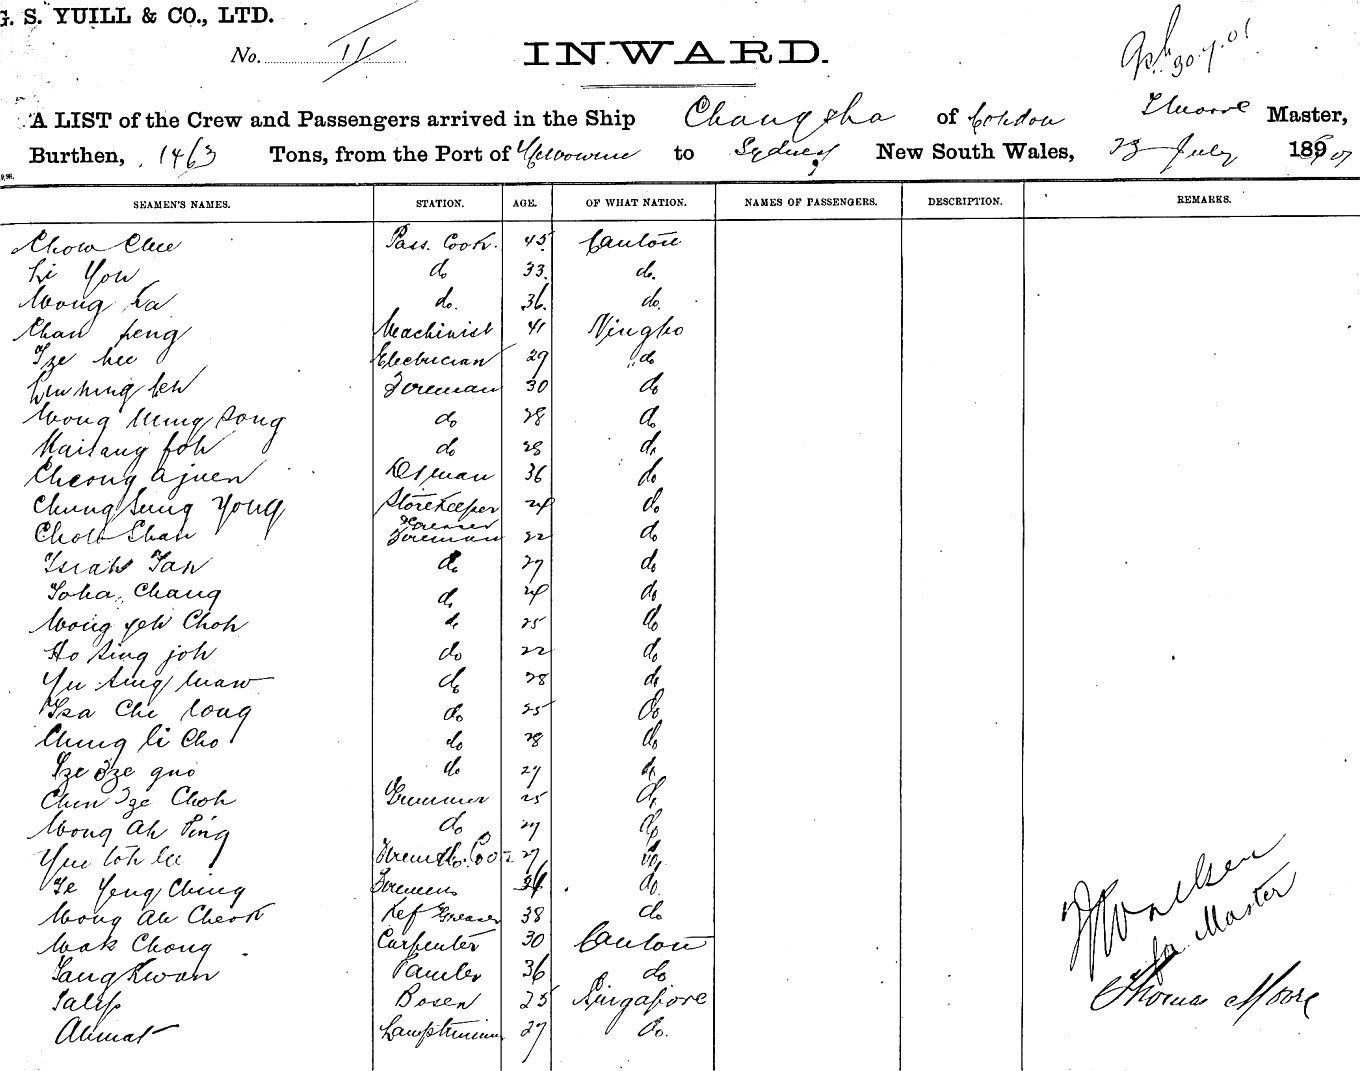 G. S. YUILL & CO., LTD.
No. II
INWARD.
30.7.01
A LIST of the Crew and Passengers arrived in the Ship Changsha of London T Moore Master,
Burthen, 1463 Tons, from the Port of Melbourne to Sydney, New South Wales, 23 July 189
SEAMEN'S NAMES. STATION. AGE. OF WHAT NATION. NAMES OF PASSENGERS. DESCRIPTION. REMARKS.
Chow Chee Pass. Cook. 45 Canton
Li You do 33. do.
Wong Ka do. 36. do.
Chan Peng Machinist 41 Ningpo
Tze hee Electrician 29 " do
Foreman 30 do
Wong Ming Song do 28 do
foh do 28 do
Cheong Ajuen 36 do
Chung Sung Yong Storekeeper 24 do
Chow Chan Greaser Foreman 22 do
Tsiah Tah do 27 do
Soha Chang do 24 do
Wong yeh Choh do 25 do
Ho sing joh do 22 do
Yu sing do 28 do
Tsa Che long do 25 do
Chung li Cho do 28 do
Sze Sze guo do 27 do
Chen Sze Choh 25 do
Wong Ah Ping do 27 do
Yuu loh lee 27 do
Te Yeng Ching 34 do
Wong Ah Cheok Ref Greaser 38 do
Wak Chong Carpenter 30 Canton
Tang Kwan Painter 36 do
Salip Bosen 25 Singapore
Ahmat Lamptrimmer 27 do.
for Master
Thomas Moore